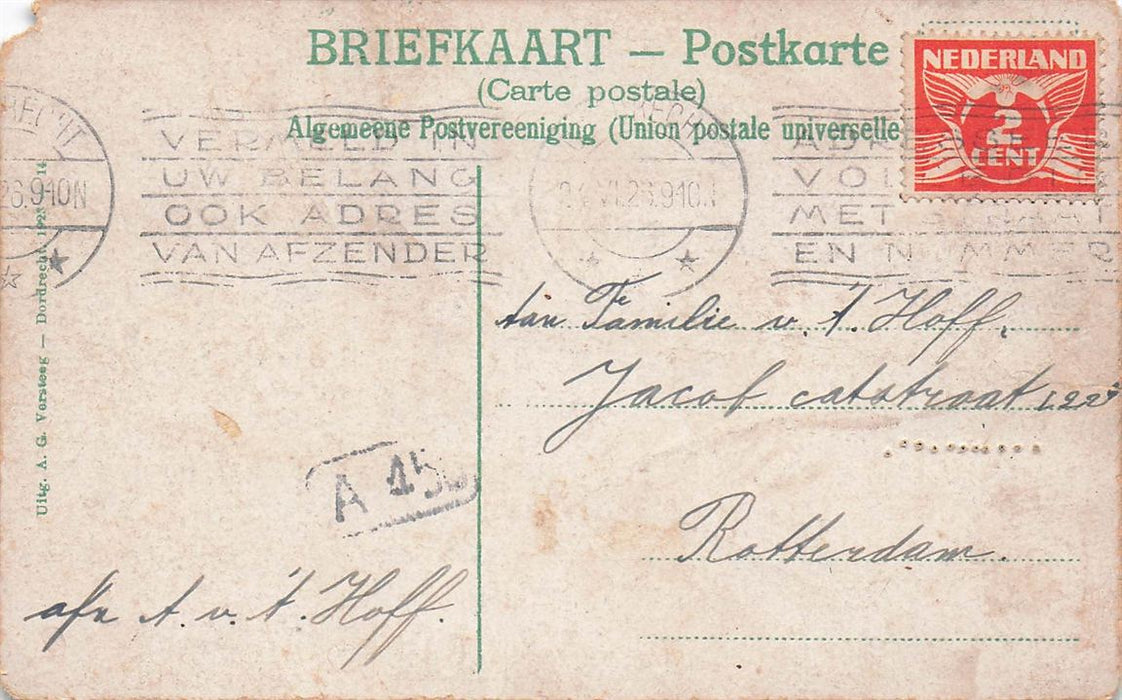 BRIEFKAART — Postkarte
(Carte postale)
Algemeene Postvereeniging (Union postale universelle
NEDERLAND
2
CENT
RECHT
VERMELD IN
UW BELANG
OOK ADRES
VAN AFZENDER
VI.26.9-10N
MET
EN NUMMER
Uitg. A. G. Versteeg — Dordrecht
Aan Familie v. 't. Hoff.
Jacob catstraat
Rotterdam.
A 45
afz A. v. 't. Hoff.